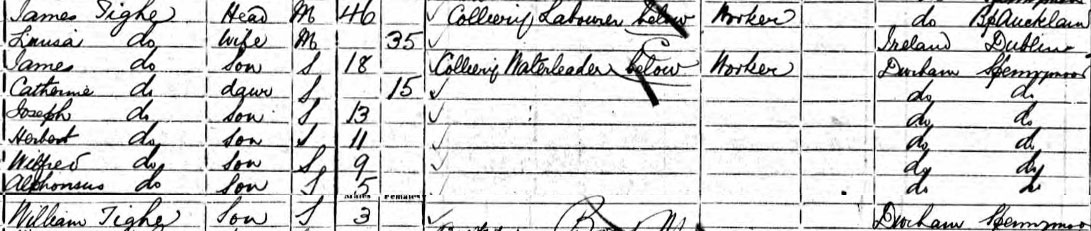 James Tighe Head M 46 Colliery Labourer below Worker do Bp Aucklan
Louisa do Wife M 35 Ireland Dublin
James do Son S 18 Colliery Waterleader below Worker Durham
Catherine do daur S 15 do do
Joseph do Son S 13 do do
Herbert do Son S 11 do do
Wilfred do Son S 9 do do
Alphonsus do Son S 5 do do
William Tighe Son S 3 Durham